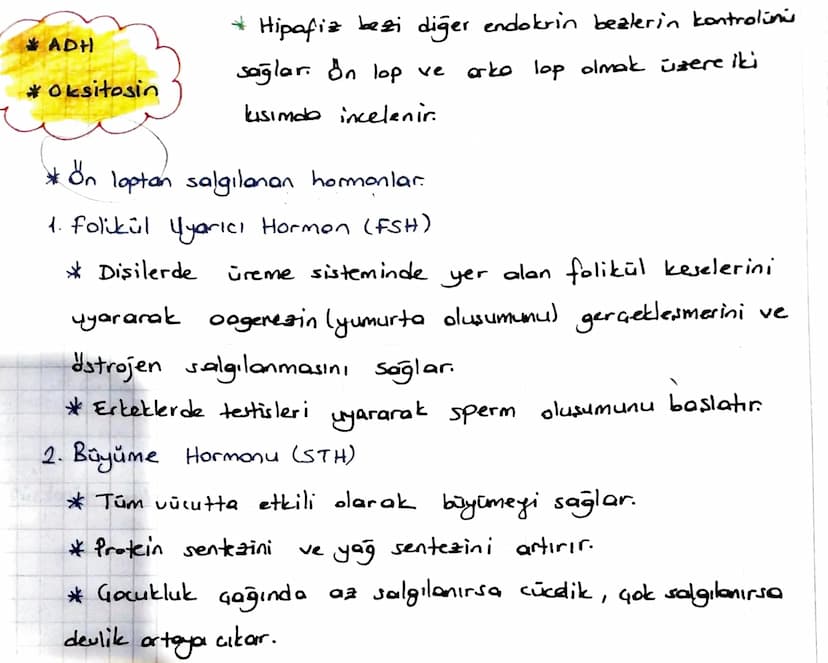 * ADH
* Oksitosin
* Hipafiz bezi diğer endokrin bezlerin kontrolünü
sağlar. Ön lop ve arka lop olmak üzere iki
kısımda incelenir.
* Ön loptan salgılanan hormonlar.
1. Folikül Uyarıcı Hormon (FSH)
* Dişilerde üreme sisteminde yer alan folikül keselerini
uyararak oogenezin (yumurta oluşumunu) gerçekleşmerini ve
östrojen salgılanmasını sağlar.
* Erkeklerde testisleri uyararak sperm oluşumunu başlatır.
2. Büyüme Hormonu (STH)
* Tüm vücutta etkili olarak büyümeyi sağlar.
* Protein sentezini ve yağ sentezini artırır.
* Çocukluk çağında az salgılanırsa cücelik, çok salgılanırsa
devlik ortaya çıkar.